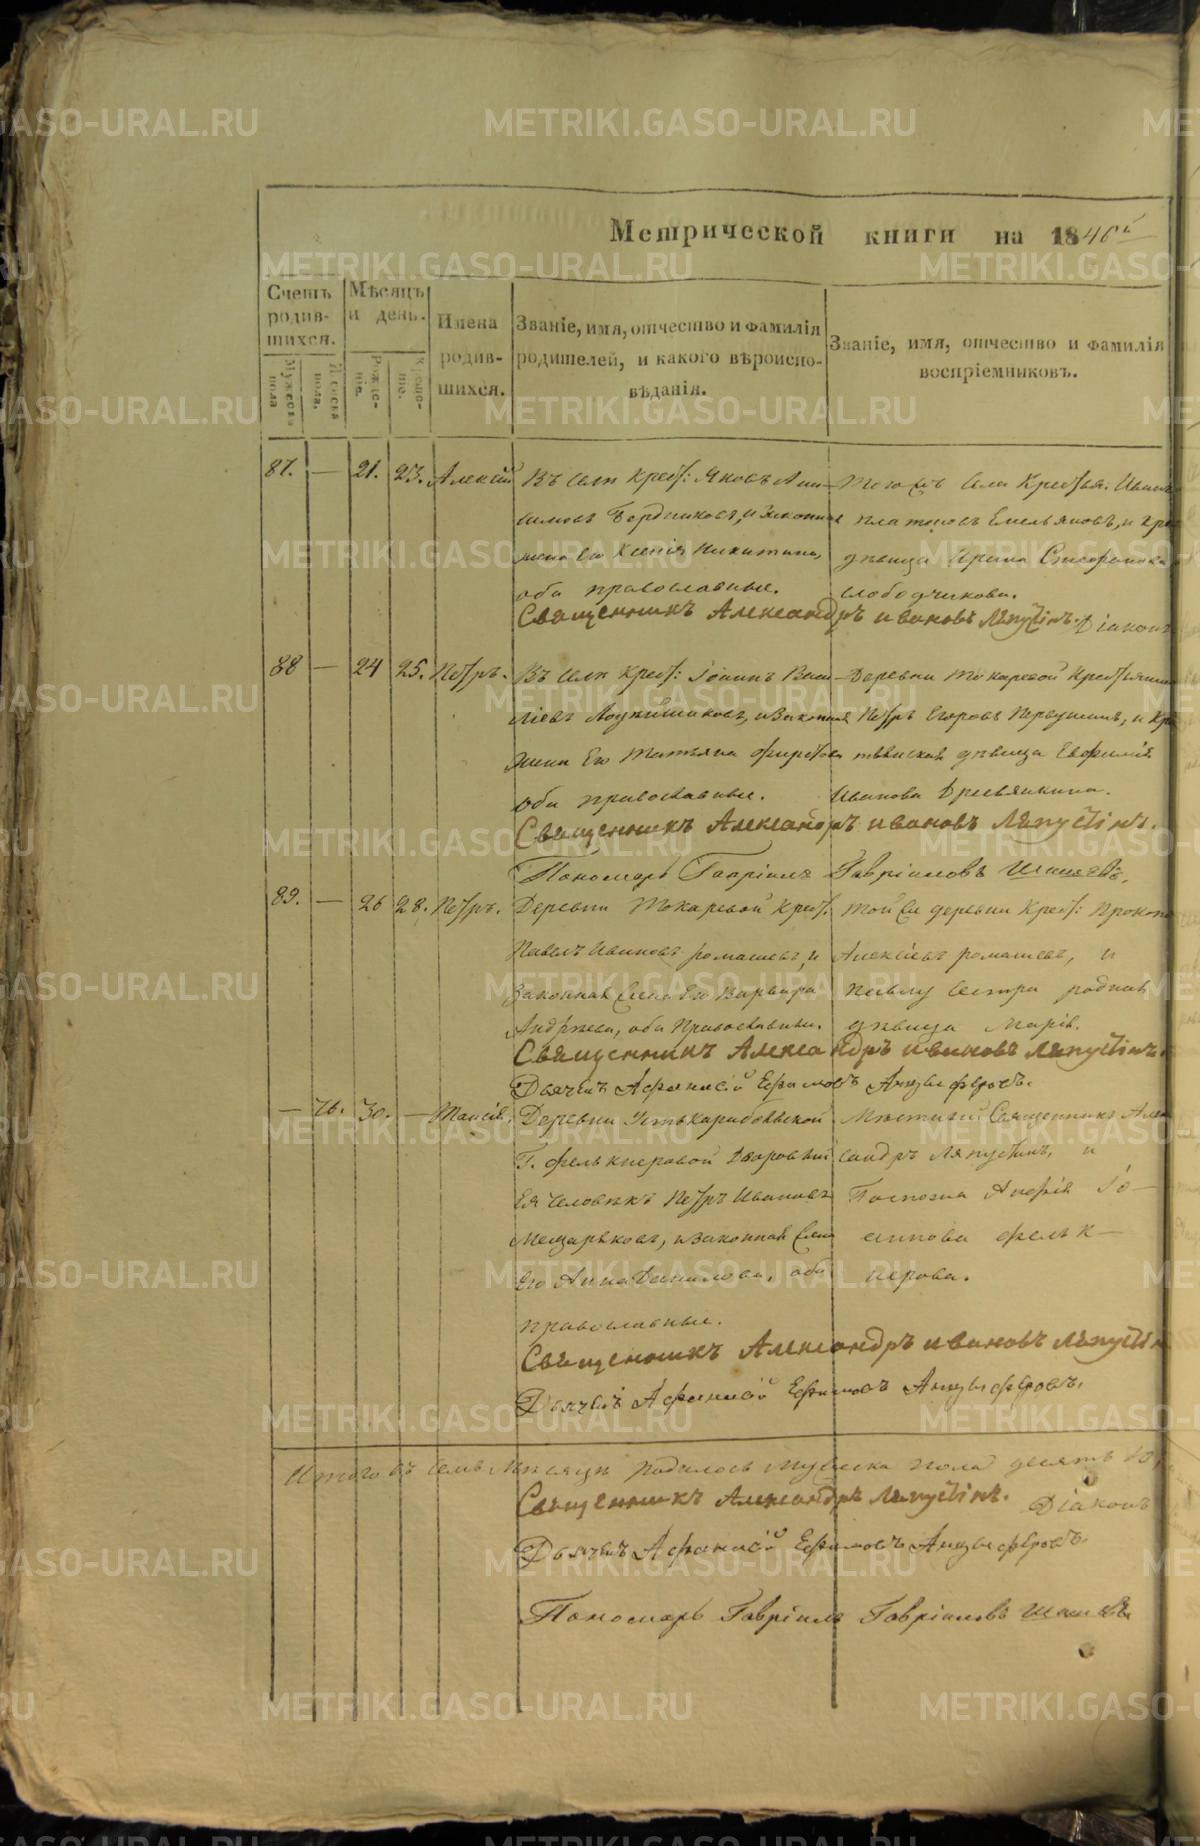 Метрической книги на 1846й
Счетъ родив-шихся.
Мужеска пола
Женска пола.
Мѣсяцъ и день.
Рожде-ніе.
Креще-ніе.
Имена родив-шихся.
Званіе, имя, отчество и фамилія родителей, и какого вѣроиспо-вѣданія.
Званіе, имя, отчество и фамилія воспріемниковъ.
87. — 21. 23. Алексій
Въ селѣ Крест: Яковъ Ани-
симовъ Бердниковъ, и законная
жена его Ксенія Никитина,
оба православные.
Того жъ села Крестья: Иванъ
Платоновъ Емельяновъ, и
дѣвица Ирина Стефанова
Слободчикова.
Священникъ Александръ Ивановъ Ляпустинъ. Діаконъ
88 — 24 25. Петръ.
Въ селѣ Крест: Іоаннъ Васи-
ліевъ, и законная
жена его Татьяна
оба православные.
Деревни Токаревой Крестьянинъ
Петръ Егоровъ Первушинъ, и
дѣвица Евфимія
Иванова Древянкина.
Священникъ Александръ Ивановъ Ляпустинъ.
Пономарь Гавріилъ Гавріиловъ
89. — 26 28. Петръ.
Деревни Токаревой Крест.
Павелъ Ивановъ Ромашевъ, и
законная жена его Варвара
Андреева, оба православные.
Той же деревни Крест:
Алексѣевъ Ромашевъ, и
Павлу сестра родная
дѣвица Марія.
Священникъ Александръ Ивановъ Ляпустинъ.
Дьячекъ Афанасій Ефимовъ Анцыферовъ.
— 76. 30. — Таисія,
Деревни Устькарабольской
Г. Фелькнеровой Дворовый
ея человѣкъ Петръ Ивановъ
Мещаряковъ, и законная жена
его Анна Данилова, оба
православные.
Мѣстный Священникъ Алек
сандръ Ляпустинъ, и
Госпожа Іо-
сипова Фельк-
нерова.
Священникъ Александръ Ивановъ Ляпустин
Дьячекъ Афанасій Ефимовъ Анцыферовъ.
Итого въ семъ мѣсяцѣ родилось мужеска пола десять 10,
Священникъ Александръ Ляпустинъ. Діаконъ
Дьячекъ Афанасій Ефимовъ Анцыферовъ.
Пономарь Гавріилъ Гавріиловъ
METRIKI.GASO-URAL.RU